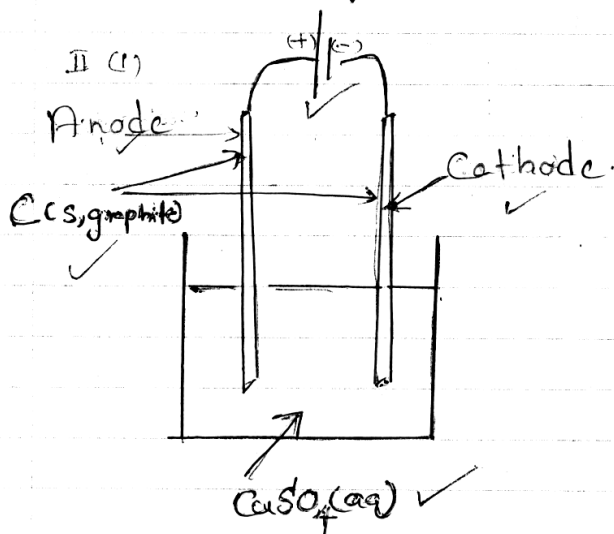 (+) (-)
II (1)
Anode
Cathode.
C(s, graphite)
CuSO4(aq)